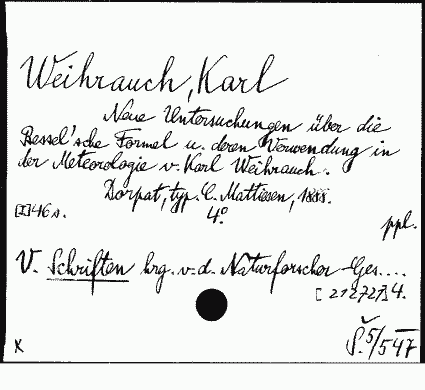 Weihrauch, Karl
Neue Untersuchungen über die
Bessel'sche Formel u. deren Verwendung in
der Meteorologie v. Karl Weihrauch.
Dorpat, typ. C. Mattiesen, 1888.
[I] 46 s. 4°
ppl.
V. Schriften hrg. v. d. Naturforscher-Ges....
[21272?] 4.
Š. 5/547
K